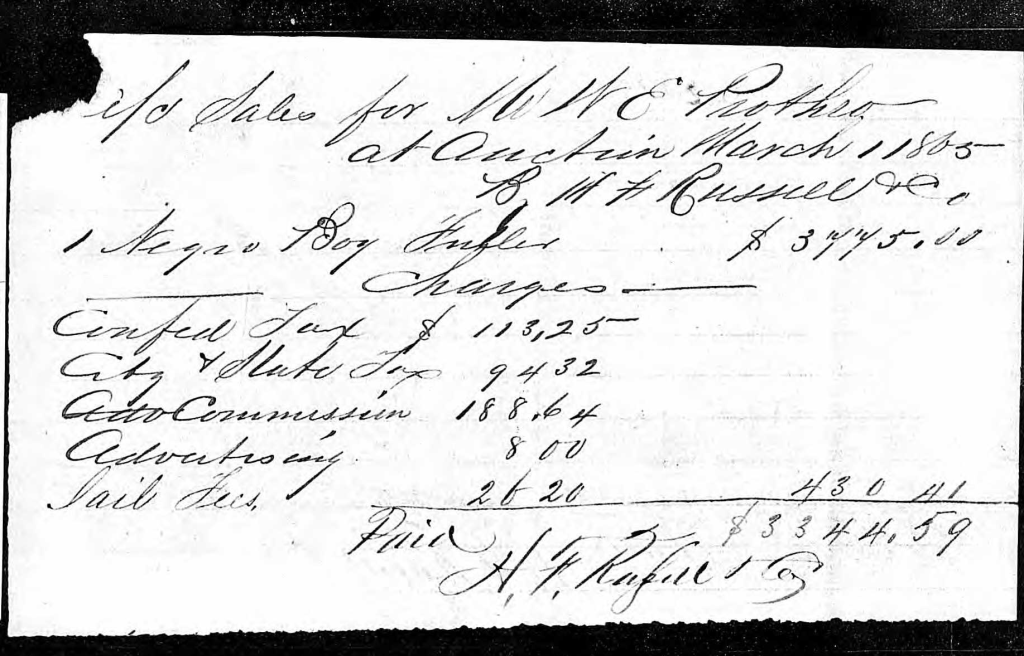 a/c Sales for Mr W E Prothro
at Auction March 1 1865
By H F Russell & Co
1 Negro Boy $ 3775.00
Charges
Confed Tax $ 113,25
City & State Tax 94 32
Commission 188.64
Advertising 8 00
Jail Fees. 26 20 430 41
$ 3344.59
Paid
H. F. Russell & Co